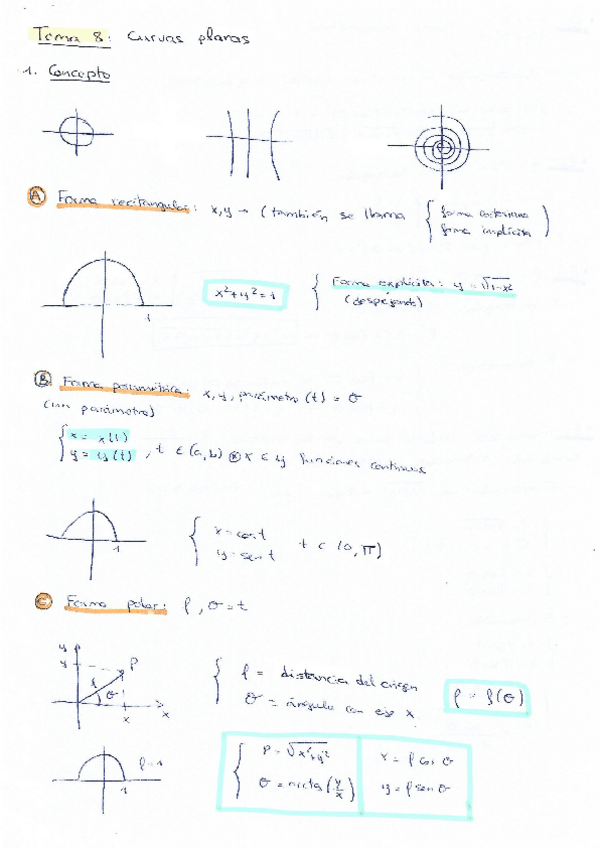 Tema 8: Curvas planas
1. Concepto
A Forma rectangular: x, y → (también se llama { forma cartesiana
forma implícita )
1
x²+y²=1
{ Forma explícita: y = √1-x²
(despejando)
B Forma paramétrica: x, y, parámetro (t) = σ
(un parámetro)
{ x = x(t)
y = y(t) , t ∈ (a,b) x e y funciones continuas
1
{ x = cos t
y = sen t
t ∈ (0, π)
C Forma polar: ρ, σ = t
y
y
P
σ
x
x
{ ρ = distancia del origen
σ = ángulo con eje x
ρ = ρ(σ)
ρ=1
1
{ ρ = √x²+y²
σ = arctg (y/x)
x = ρ cos σ
y = ρ sen σ